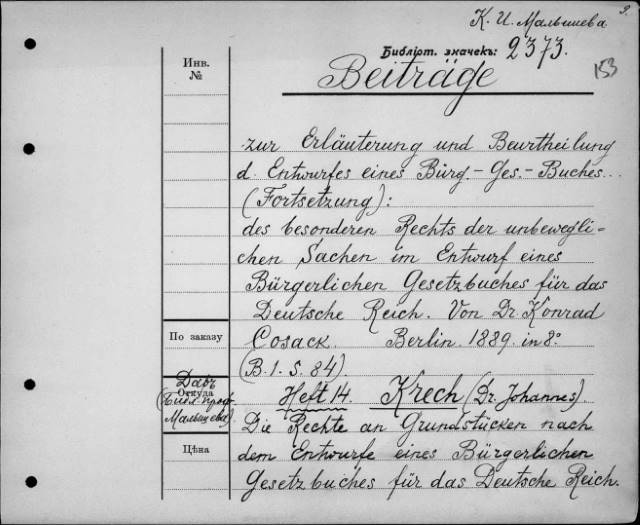 9.
К. И. Малышева
Библіот. значекъ: 2373.
153
Beiträge
Инв.
№
zur Erläuterung und Beurtheilung
d. Entwurfes eines Bürg.-Ges.-Buches...
(Fortsetzung):
des besonderen Rechts der unbewegli-
chen Sachen im Entwurf eines
Bürgerlichen Gesetzbuches für das
Deutsche Reich. Von Dr. Konrad
По заказу
Cosack. Berlin. 1889. in 8°
(B. 1. S. 84).
Даръ
Откуда
(Библ. проф.
Малышева).
Heft 14. Krech (Dr. Johannes)
Die Rechte an Grundstücken nach
Цѣна
dem Entwurfe eines Bürgerlichen
Gesetzbuches für das Deutsche Reich.